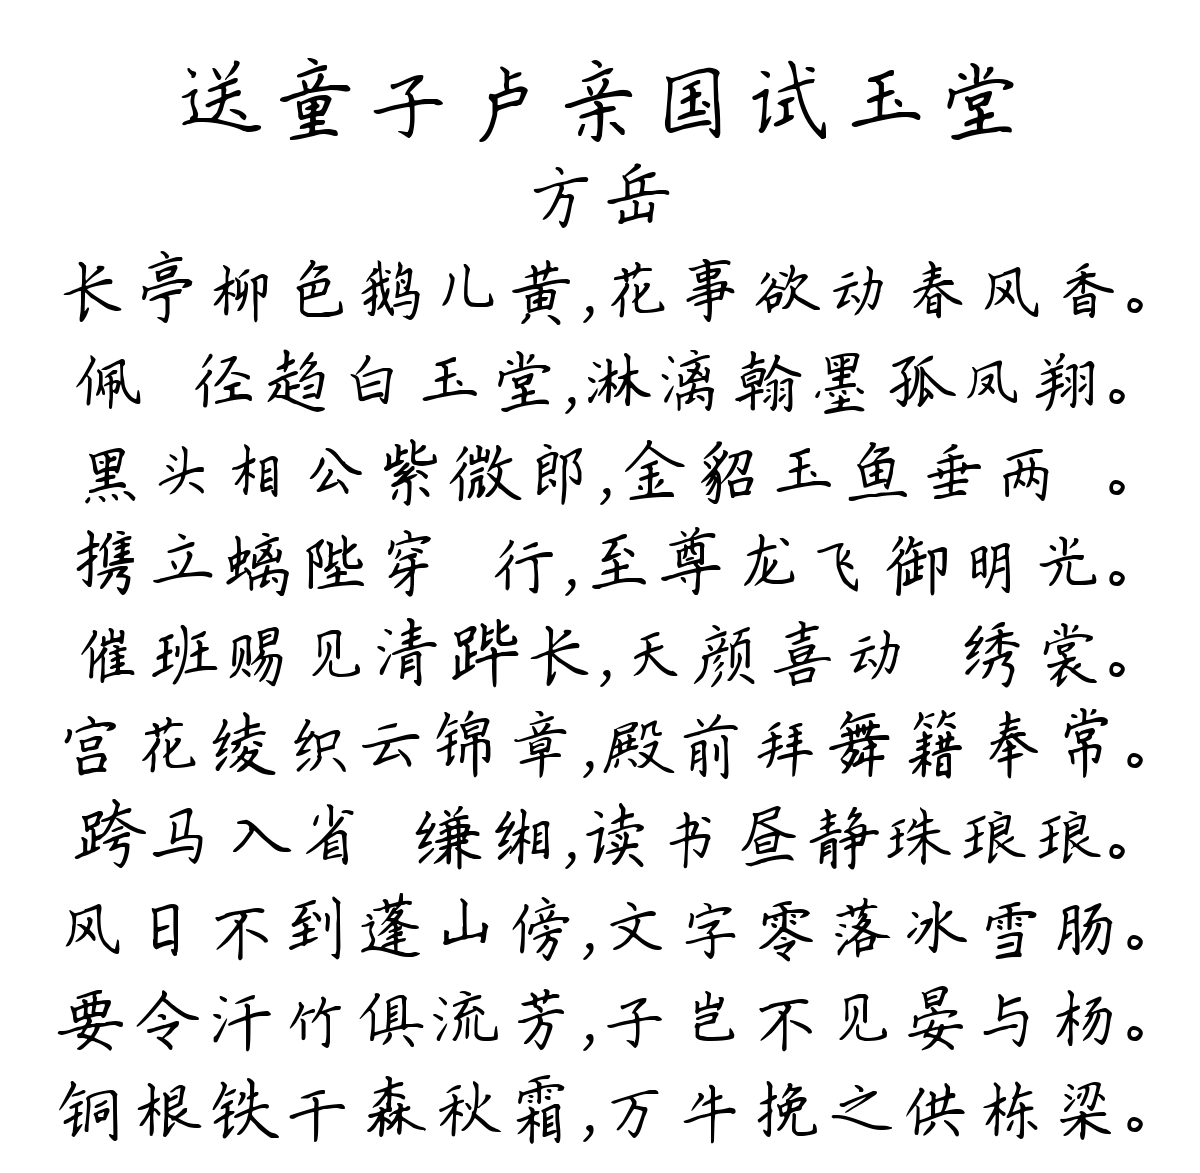 送童子卢亲国试玉堂
方岳
长亭柳色鹅儿黄,花事欲动春风香。
佩 径趋白玉堂,淋漓翰墨孤凤翔。
黑头相公紫微郎,金貂玉鱼垂两 。
携立螭陛穿 行,至尊龙飞御明光。
催班赐见清跸长,天颜喜动 绣裳。
宫花绫织云锦章,殿前拜舞籍奉常。
跨马入省 缣缃,读书昼静珠琅琅。
风日不到蓬山傍,文字零落冰雪肠。
要令汗竹俱流芳,子岂不见晏与杨。
铜根铁干森秋霜,万牛挽之供栋梁。